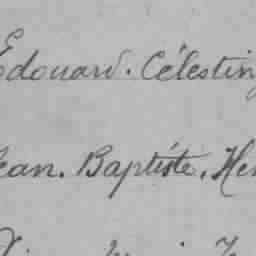 Edouard. Célestin,
Jean. Baptiste, Hen